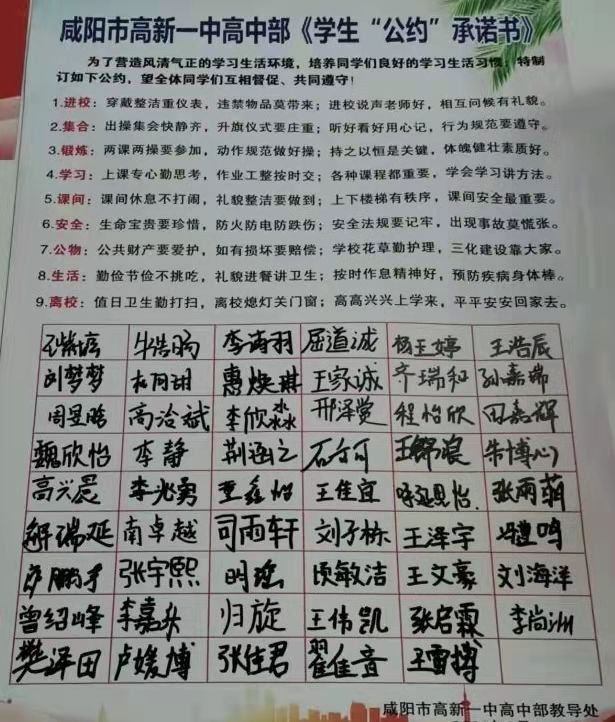 咸阳市高新一中高中部《学生“公约”承诺书》
为了营造风清气正的学习生活环境，培养同学们良好的学习生活习惯，特制
订如下公约，望全体同学们互相督促、共同遵守！
1.进校：穿戴整洁重仪表，违禁物品莫带来；进校说声老师好，相互问候有礼貌。
2.集合：出操集会快静齐，升旗仪式要庄重；听好看好用心记，行为规范要遵守。
3.锻炼：两课两操要参加，动作规范做好操；持之以恒是关键，体魄健壮素质好。
4.学习：上课专心勤思考，作业工整按时交；各种课程都重要，学会学习讲方法。
5.课间：课间休息不打闹，礼貌整洁要做到；上下楼梯有秩序，课间安全最重要。
6.安全：生命宝贵要珍惜，防火防电防跌伤；安全法规要记牢，出现事故莫慌张。
7.公物：公共财产要爱护，如有损坏要赔偿；学校花草勤护理，三化建设靠大家。
8.生活：勤俭节俭不挑吃，礼貌进餐讲卫生；按时作息精神好，预防疾病身体棒。
9.离校：值日卫生勤打扫，离校熄灯关门窗；高高兴兴上学来，平平安安回家去。
李海羽 屈道诚 杨玉婷 王浩辰
刘梦梦 杜雨甜 惠焕琪 王家诚 齐瑞和 孙嘉瑞
周昱晗 高洽斌 李欣淼 邢泽萱 程怡欣 田嘉辉
魏欣怡 李静 荆涵之 石可可 朱博心
高兴晨 李兆勇 王佳宜 呼延思怡 张雨萌
解瑞延 南卓越 司雨轩 刘子栋 王泽宇
张宇熙 明瑶 王文豪 刘海洋
曾绍峰 李嘉升 归旋 王伟凯 张启霖 李尚洲
樊泽田 卢媛博 张佳君 翟佳音 王雷博
咸阳市高新一中高中部教导处